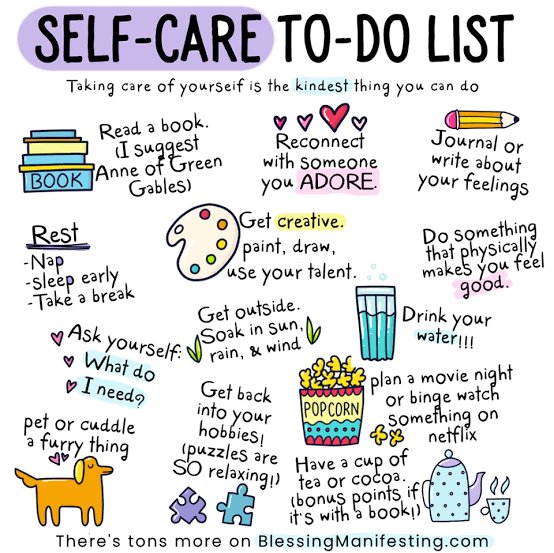 SELF-CARE TO-DO LIST
Taking care of yourself is the kindest thing you can do
Read a book.
(I suggest
Anne of Green
Gables)
BOOK
Reconnect
with someone
you ADORE.
Journal or
write about
your feelings
Rest
-Nap
-sleep early
-Take a break
Get creative.
paint, draw,
use your talent.
Do something
that physically
makes you feel
good.
Ask yourself:
What do
I need?
Get outside.
Soak in sun,
rain, & wind
Drink your
water!!!
pet or cuddle
a furry thing
Get back
into your
hobbies!
(puzzles are
SO relaxing!)
POPCORN
plan a movie night
or binge watch
something on
netflix
Have a cup of
tea or cocoa.
(bonus points if
it's with a book!)
There's tons more on BlessingManifesting.com